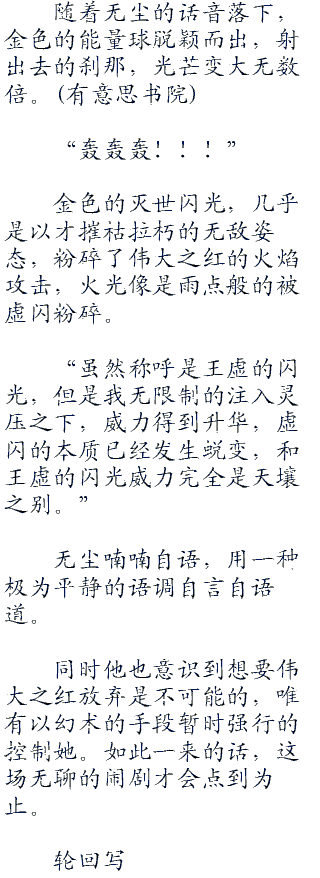 随着无尘的话音落下，
金色的能量球脱颖而出，射
出去的刹那，光芒变大无数
倍。(有意思书院)
“轰轰轰！！！”
金色的灭世闪光，几乎
是以才摧枯拉朽的无敌姿
态，粉碎了伟大之红的火焰
攻击，火光像是雨点般的被
虚闪粉碎。
“虽然称呼是王虚的闪
光，但是我无限制的注入灵
压之下，威力得到升华，虚
闪的本质已经发生蜕变，和
王虚的闪光威力完全是天壤
之别。”
无尘喃喃自语，用一种
极为平静的语调自言自语
道。
同时他也意识到想要伟
大之红放弃是不可能的，唯
有以幻术的手段暂时强行的
控制她。如此一来的话，这
场无聊的闹剧才会点到为
止。
轮回写